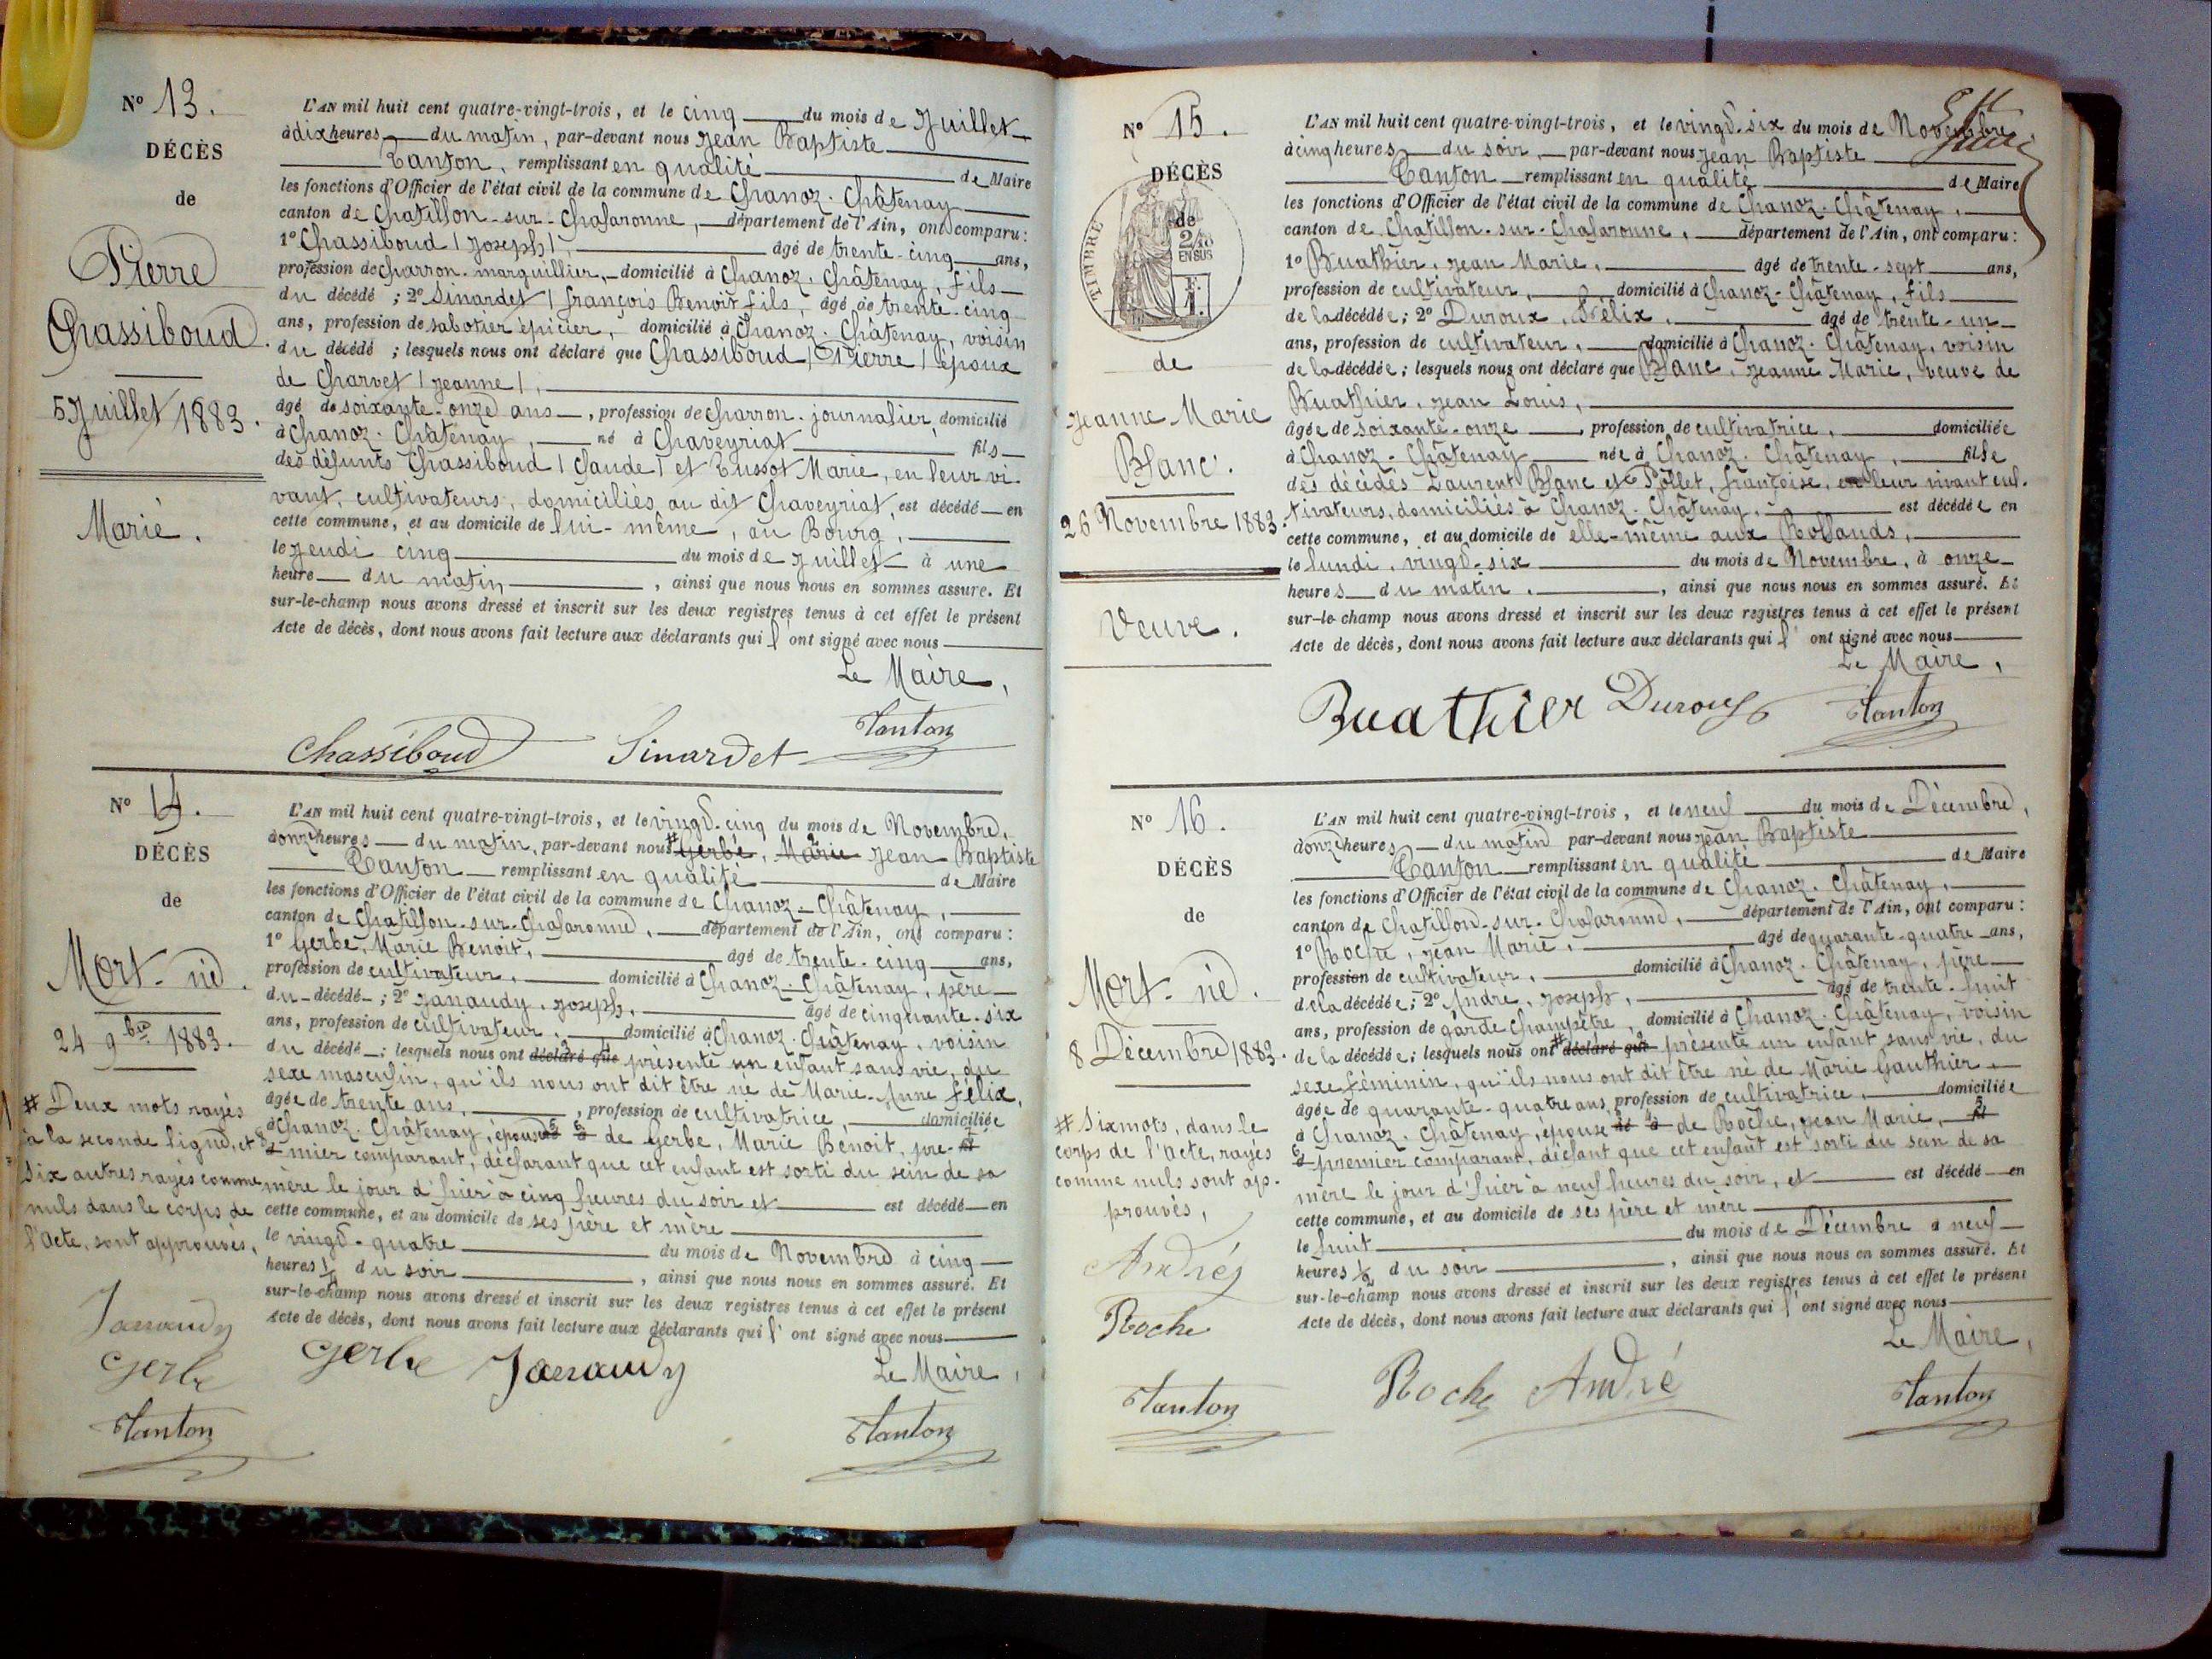 N° 13.
DÉCÈS
de
Pierre
Chassiboud.
5 Juillet 1883.
Marié.
L'AN mil huit cent quatre-vingt-trois, et le cinq du mois de Juillet
à dix heures du matin, par-devant nous Jean Baptiste
Tanton, remplissant en qualité de Maire
les fonctions d'Officier de l'état civil de la commune de Chanoz-Châtenay
canton de Chatillon-sur-Chalaronne, département de l'Ain, ont comparu:
1° Chassiboud (Joseph), âgé de trente-cinq ans,
profession de charron-marguillier, domicilié à Chanoz-Châtenay, fils
du décédé; 2° Sinardet (françois Benoît fils, âgé de trente-cinq
ans, profession de sabotier épicier, domicilié à Chanoz-Châtenay, voisin
du décédé; lesquels nous ont déclaré que Chassiboud (Pierre) époux
de Charvet (Jeanne),
âgé de soixante-onze ans, profession de charron-journalier, domicilié
à Chanoz-Châtenay, né à Chaveyriat fils
des défunts Chassiboud (Claude) et Tussot Marie, en leur vi-
vant, cultivateurs, domiciliés au dit Chaveyriat, est décédé en
cette commune, et au domicile de lui-même, au Bourg,
le jeudi cinq du mois de Juillet à une
heure du matin, ainsi que nous nous en sommes assuré. Et
sur-le-champ nous avons dressé et inscrit sur les deux registres tenus à cet effet le présent
Acte de décès, dont nous avons fait lecture aux déclarants qui l'ont signé avec nous
Le Maire,
Chassiboud Sinardet Tanton
N° 14.
DÉCÈS
de
Mort-né.
24 9bre 1883.
# Deux mots rayés
à la seconde ligne, et
six autres rayés comme
nuls dans le corps de
l'acte, sont approuvés,
Janaudy
Gerbe
Tanton
L'AN mil huit cent quatre-vingt-trois, et le vingt-cinq du mois de Novembre,
à onze heures du matin, par-devant nous # Gerbe, Marie Jean Baptiste
Tanton remplissant en qualité de Maire
les fonctions d'Officier de l'état civil de la commune de Chanoz-Châtenay,
canton de Chatillon-sur-Chalaronne, département de l'Ain, ont comparu:
1° Gerbe, Marie Benoit, âgé de trente-cinq ans,
profession de cultivateur, domicilié à Chanoz-Châtenay, père
du décédé; 2° Janaudy, Joseph, âgé de cinquante-six
ans, profession de cultivateur, domicilié à Chanoz-Châtenay, voisin
du décédé; lesquels nous ont déclaré que présenté un enfant sans vie, du
sexe masculin, qu'ils nous ont dit être né de Marie-Anne Félix,
âgée de trente ans, profession de cultivatrice, domiciliée
à Chanoz-Châtenay, épouse né à de Gerbe, Marie Benoit, pre-
mier comparant, déclarant que cet enfant est sorti du sein de sa
mère le jour d'hier à cinq heures du soir et est décédé en
cette commune, et au domicile de ses père et mère
le vingt-quatre du mois de Novembre à cinq
heures ½ du soir, ainsi que nous nous en sommes assuré. Et
sur-le-champ nous avons dressé et inscrit sur les deux registres tenus à cet effet le présent
Acte de décès, dont nous avons fait lecture aux déclarants qui l'ont signé avec nous
Gerbe Janaudy Le Maire,
Tanton
N° 15.
DÉCÈS
TIMBRE
de
2/10
EN SUS
de
Jeanne Marie
Blanc.
26 Novembre 1883.
Veuve.
L'AN mil huit cent quatre-vingt-trois, et le vingt-six du mois de Novembre,
à cinq heures du soir, par-devant nous Jean Baptiste
Tanton remplissant en qualité de Maire
les fonctions d'Officier de l'état civil de la commune de Chanoz-Châtenay,
canton de Chatillon-sur-Chalaronne, département de l'Ain, ont comparu:
1° Buathier, Jean Marie, âgé de trente-sept ans,
profession de cultivateur, domicilié à Chanoz-Châtenay, fils
de la décédée; 2° Duroux, Félix, âgé de trente-un
ans, profession de cultivateur, domicilié à Chanoz-Châtenay, voisin
de la décédée; lesquels nous ont déclaré que Blanc, Jeanne Marie, veuve de
Buathier, Jean Louis,
âgée de soixante-onze, profession de cultivatrice, domiciliée
à Chanoz-Châtenay née à Chanoz-Châtenay, fille
des décédés Laurent Blanc et Pollet, françoise, en leur vivant cul-
tivateurs, domiciliés à Chanoz-Châtenay, est décédée en
cette commune, et au domicile de elle-même aux Rollands,
le lundi, vingt-six du mois de Novembre, à onze
heures du matin, ainsi que nous nous en sommes assuré. Et
sur-le-champ nous avons dressé et inscrit sur les deux registres tenus à cet effet le présent
Acte de décès, dont nous avons fait lecture aux déclarants qui l'ont signé avec nous
Le Maire,
Buathier Duroux Tanton
N° 16.
DÉCÈS
de
Mort-né.
8 Décembre 1883.
# Six mots, dans le
corps de l'acte, rayés
comme nuls sont ap-
prouvés,
André
Roche
Tanton
L'AN mil huit cent quatre-vingt-trois, et le neuf du mois de Décembre,
à onze heures du matin par-devant nous Jean Baptiste
Tanton remplissant en qualité de Maire
les fonctions d'Officier de l'état civil de la commune de Chanoz-Châtenay,
canton de Chatillon-sur-Chalaronne, département de l'Ain, ont comparu:
1° Roche, Jean Marie, âgé de quarante-quatre ans,
profession de cultivateur, domicilié à Chanoz-Châtenay, père
de la décédée; 2° André, Joseph, âgé de trente-huit
ans, profession de garde champêtre, domicilié à Chanoz-Châtenay, voisin
de la décédée; lesquels nous ont # déclaré que présenté un enfant sans vie, du
sexe féminin, qu'ils nous ont dit être né de Marie Gauthier
âgée de quarante-quatre ans, profession de cultivatrice, domiciliée
à Chanoz-Châtenay, épouse né à de Roche, Jean Marie,
premier comparant, déclant que cet enfant est sorti du sein de sa
mère le jour d'hier à neuf heures du soir, et est décédé en
cette commune, et au domicile de ses père et mère
le huit du mois de Décembre à neuf
heures ½ du soir, ainsi que nous nous en sommes assuré. Et
sur-le-champ nous avons dressé et inscrit sur les deux registres tenus à cet effet le présent
Acte de décès, dont nous avons fait lecture aux déclarants qui l'ont signé avec nous
Le Maire,
Roche André Tanton